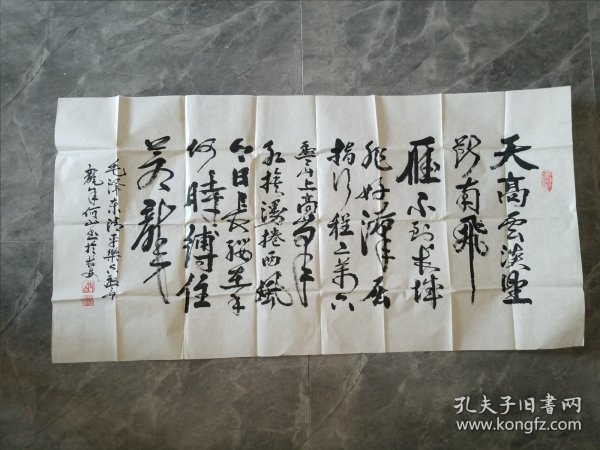 天高云淡望
断南飞
雁不到长城
非好汉屈
指行程二万六
盘山上高峰
红旗漫卷西风
今日长缨在手
何时缚住
苍龙
毛泽东清平乐六盘山
龙年何 书于长安
孔夫子旧书网
www.kongfz.com